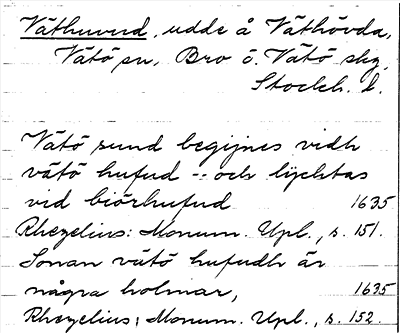 Väthuvud, udde å Väthövda,
Vätö sn, Bro o. Vätö skg,
Stockh. l.
Vätö sund begijnes vidh
vätö hufud -- och lijchtas
vid biörhufud 1635
Rhezelius: Monum. Upl., s. 151.
Sonan vätö hufudh är
några holmar, 1635
Rhezelius, Monum. Upl., s. 152.